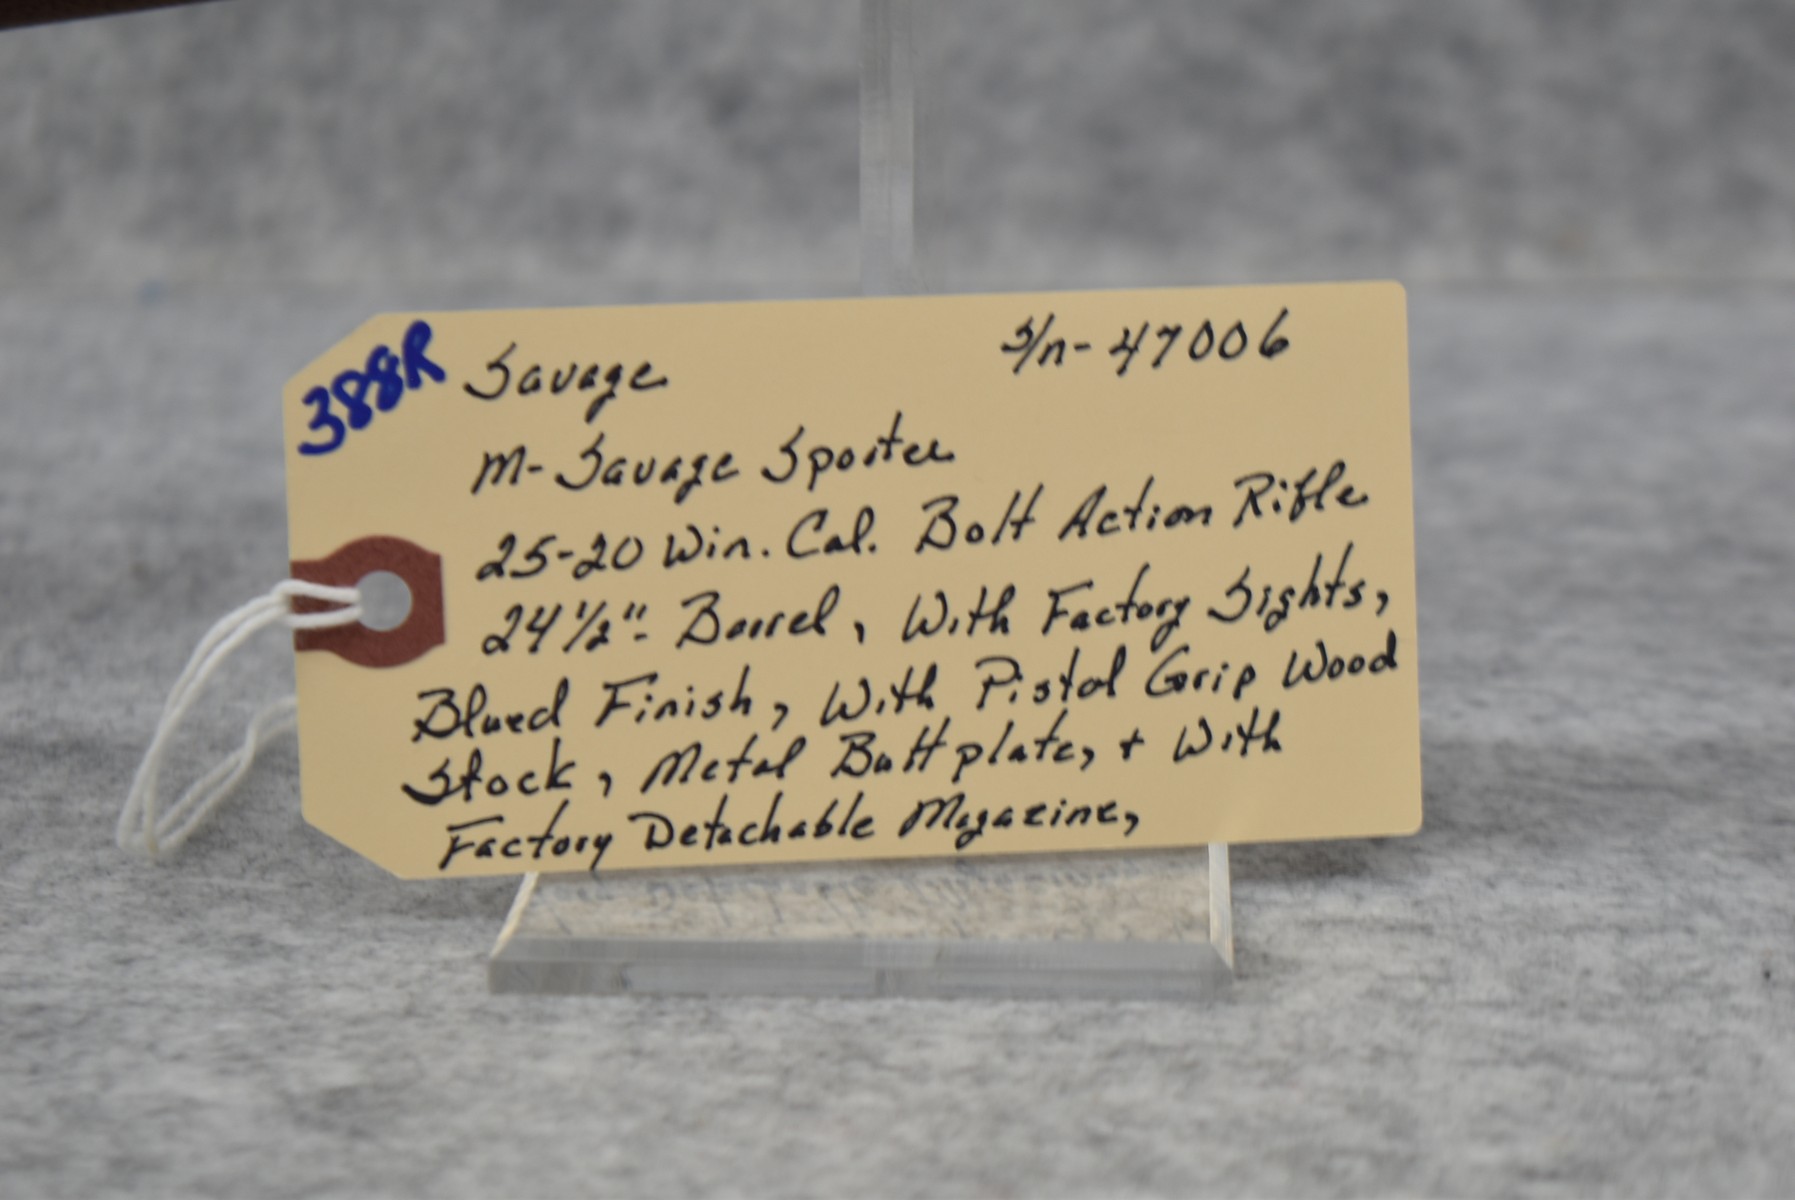 388R
Savage S/n- 47006
M- Savage Sporter
25-20 Win. Cal. Bolt Action Rifle
24 1/2"- Barrel, With Factory Sights,
Blued Finish, With Pistol Grip Wood
Stock, Metal Buttplate, + With
Factory Detachable Magazine,